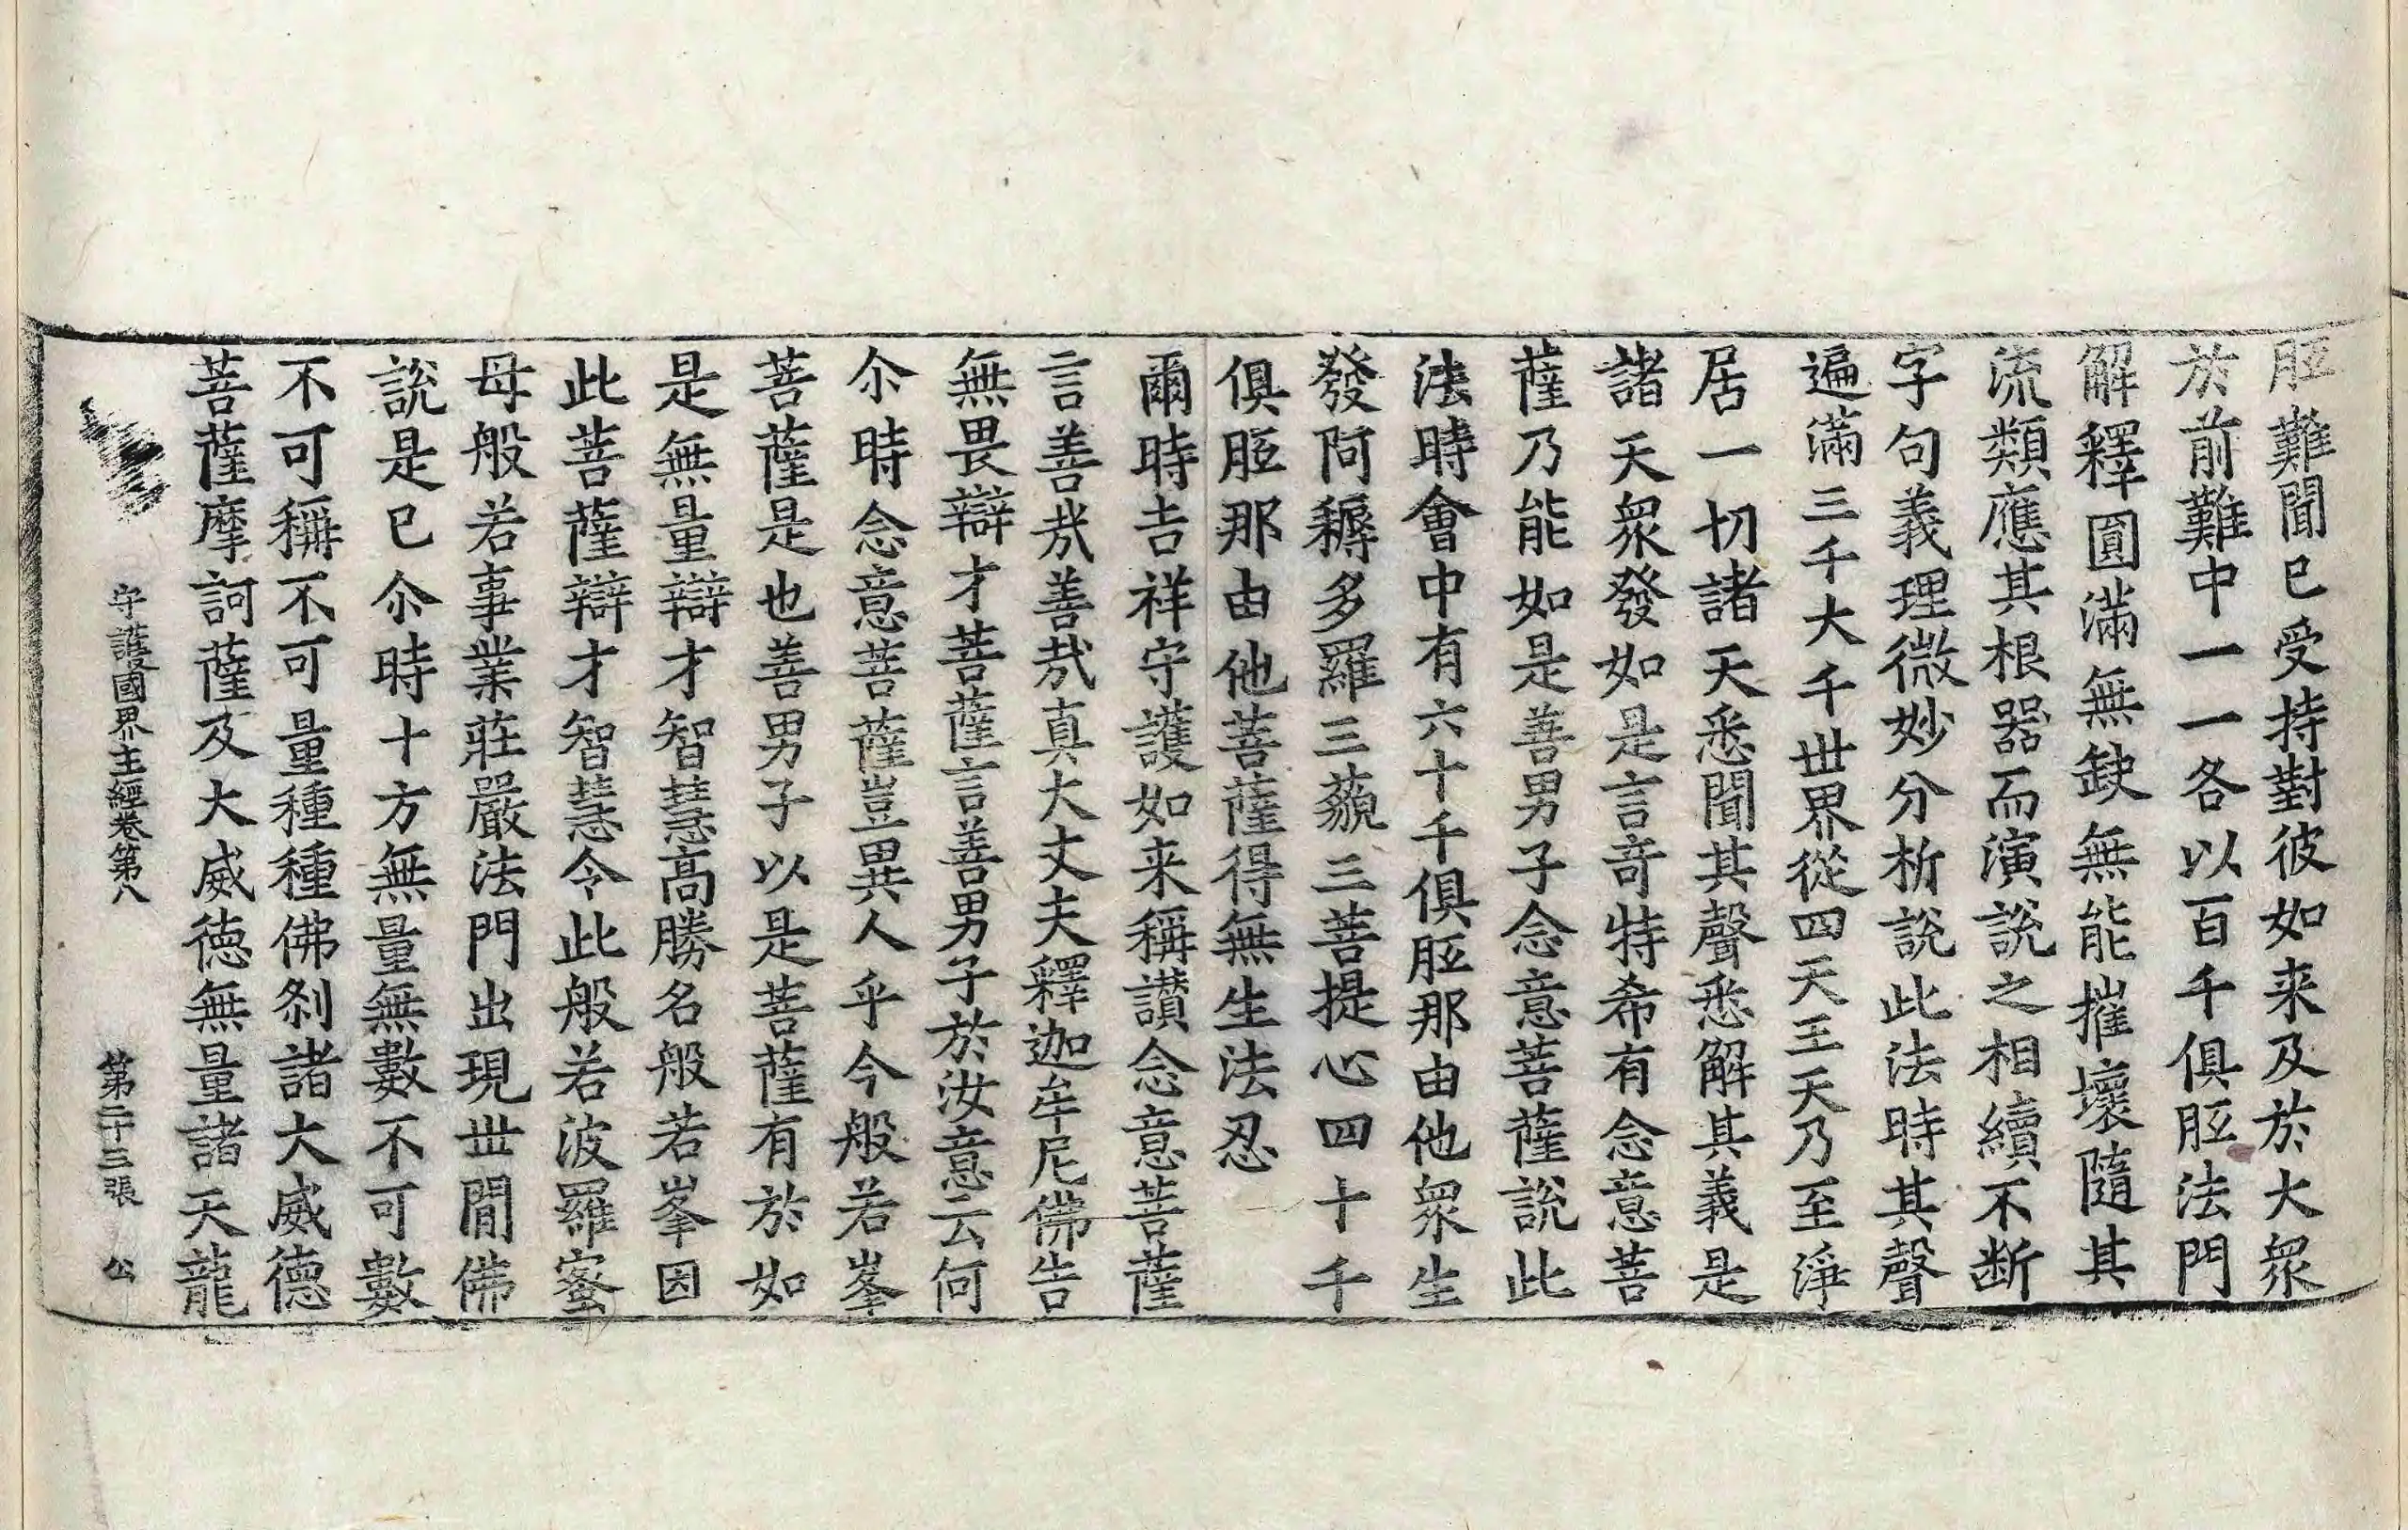 胝難聞已受持對彼如来及於大衆
於前難中一一各以百千俱胝法門
解釋圓滿無缺無能摧壞隨其
流類應其根器而演說之相續不断
字句義理微妙分析說此法時其聲
遍滿三千大千世界從四天王天乃至淨
居一切諸天悉聞其聲悉解其義是
諸天衆發如是言奇特希有念意菩
薩乃能如是善男子念意菩薩說此
法時會中有六十千俱胝那由他衆生
發阿耨多羅三藐三菩提心四十千
俱胝那由他菩薩得無生法忍
爾時吉祥守護如来稱讃念意菩薩
言善哉善哉真大丈夫釋迦牟尼佛告
無畏辯才菩薩言善男子於汝意云何
尒時念意菩薩豈異人乎今般若峯
菩薩是也善男子以是菩薩有於如
是無量辯才智慧高勝名般若峯因
此菩薩辯才智慧令此般若波羅蜜
母般若事業莊嚴法門出現世間佛
說是已尒時十方無量無數不可數
不可稱不可量種種佛刹諸大威德
菩薩摩訶薩及大威德無量諸天龍
守護國界主經卷第八 第二十三張 公